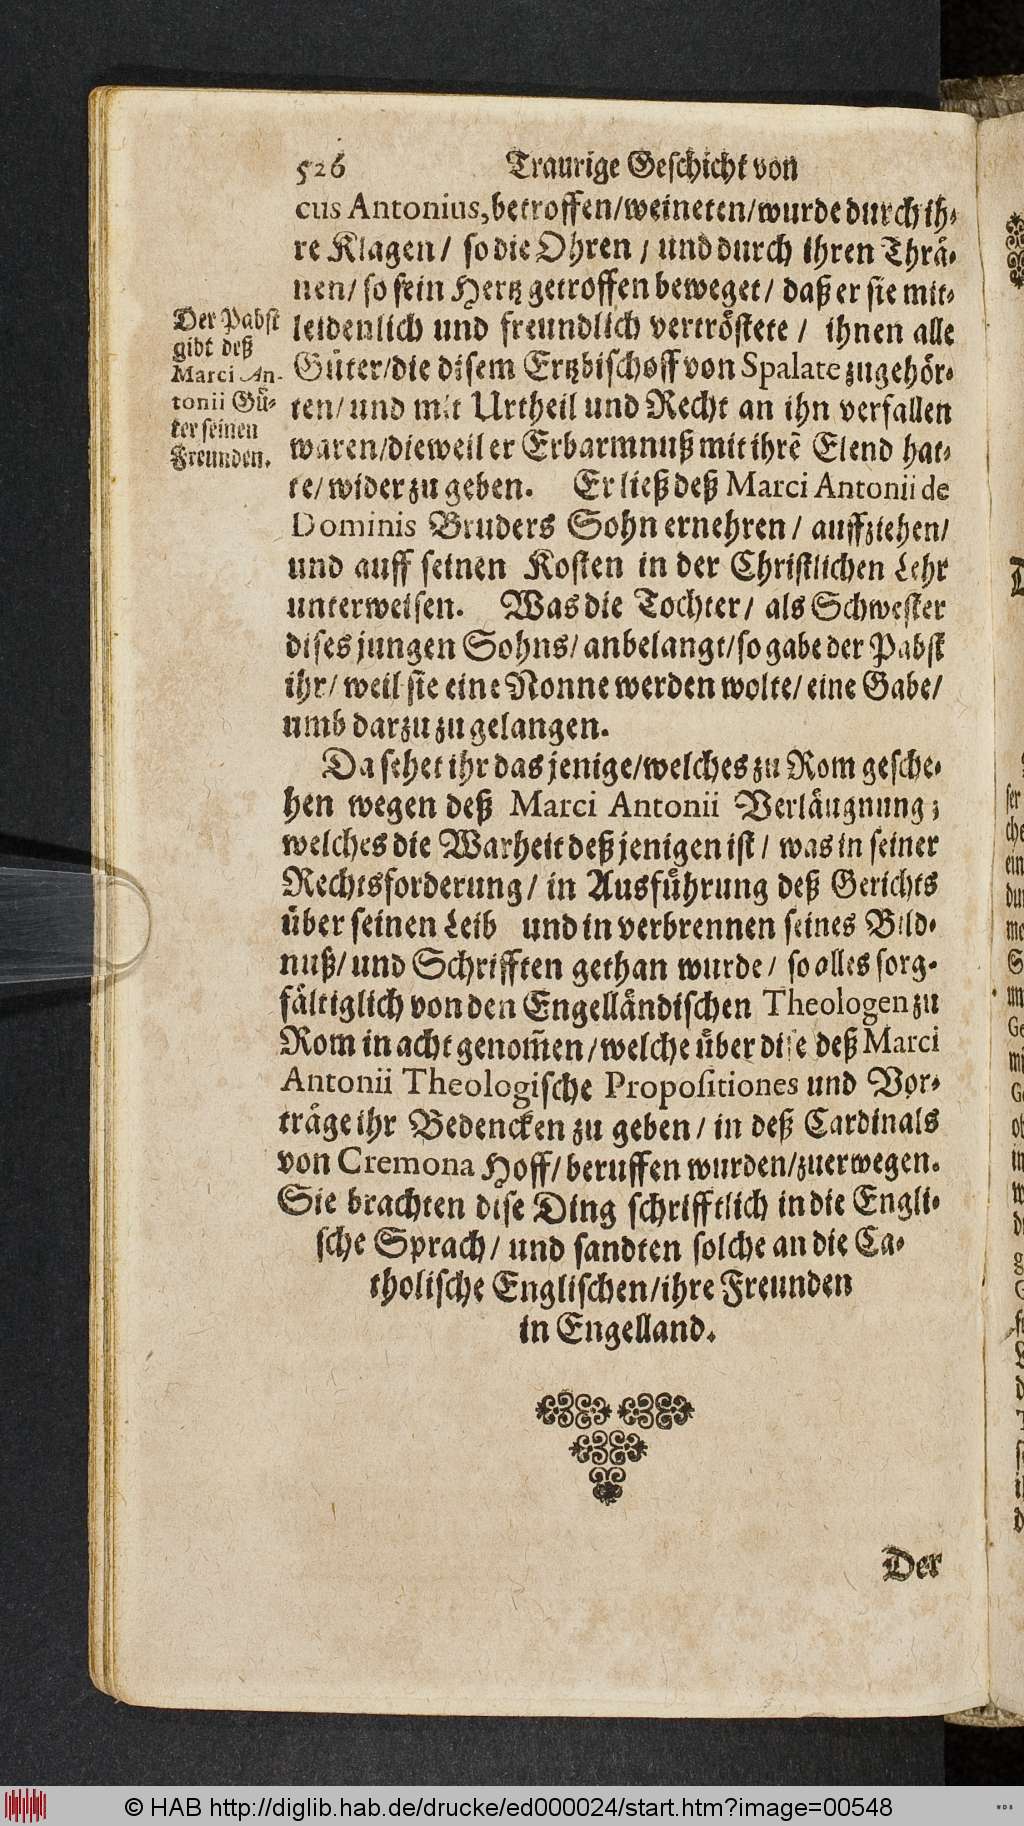 526 Traurige Geschicht von
cus Antonius, betroffen/weineten/wurde durch ih⸗
re Klagen/ so die Ohren/ und durch ihren Thrä⸗
nen/ so sein Hertz getroffen beweget/ daß er sie mit⸗
leidenlich und freundlich vertröstete/ ihnen alle
Güter/die disem Ertzbischoff von Spalate zugehör⸗
ten/ und mit Urtheil und Recht an ihn verfallen
waren/dieweil er Erbarmnuß mit ihrẽ Elend hat⸗
te/ wider zu geben. Er ließ deß Marci Antonii de
Dominis Bruders Sohn ernehren/ auffziehen/
und auff seinen Kosten in der Christlichen Lehr
unterweisen. Was die Tochter/ als Schwester
dises jungen Sohns/ anbelangt/so gabe der Pabst
ihr/ weil sie eine Nonne werden wolte/ eine Gabe/
umb darzu zu gelangen.
Der Pabst
gibt deß
Marci An-
tonii Gü⸗
ter seinen
Freunden.
Da sehet ihr das jenige/welches zu Rom gesche⸗
hen wegen deß Marci Antonii Verläugnung;
welches die Warheit deß jenigen ist/ was in seiner
Rechtsforderung/ in Ausführung deß Gerichts
über seinen Leib und in verbrennen seines Bild⸗
nuß/ und Schrifften gethan wurde/ so alles sorg⸗
fältiglich von den Engelländischen Theologen zu
Rom in acht genom̃en/welche über dise deß Marci
Antonii Theologische Propositiones und Vor⸗
träge ihr Bedencken zu geben/ in deß Cardinals
von Cremona Hoff/ beruffen wurden/zuerwegen.
Sie brachten dise Ding schrifftlich in die Engli⸗
sche Sprach/ und sandten solche an die Ca⸗
tholische Englischen/ihre Freunden
in Engelland.
Der
© HAB http://diglib.hab.de/drucke/ed000024/start.htm?image=00548